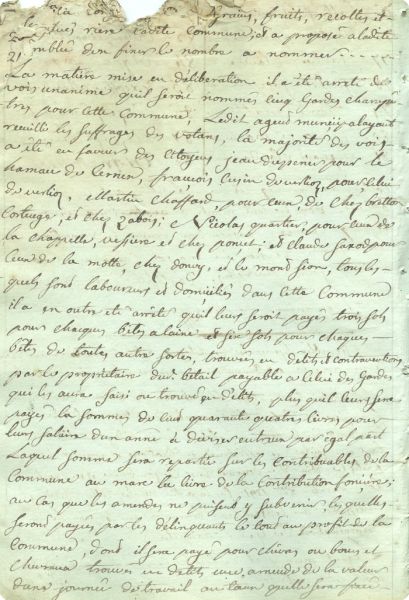 grains, fruits, recoltes et
cadite Commune, et a proposé aladite
d'en finer le nombre a nommer
La matière mise en deliberation il a été arreté de
voix unanime qu'il seroit nommés Cinq Gardes Champe
tres pour cette Commune, Ledit agend municip alayant
recuilli les suffrages des votans, la majorité des voix
a été en faveur des Citoyens jean pour le
hameau de Cernex, françois pour celui
de verlioz, Martin Chaffard, pour ceux de chez bretton
et chez Zabois; Nicolas quartier, pour ceux de
la chappelle, vessiere et chez poncet; et Claude pour
Ceux de la motte, chez et le mond sion, tous les-
quels sont laboureurs et domiciliés dans Cette Commune
il a en outre été arreté qu'il leurs seroit payés trois sols
pour chaques bètes a laine et six sols pour chaques-
bètes de toutes autre sortes, trouvées en delits et contraventions
par le proprietaire du betail payable a Celui des Gardes
qui les aura saisi ou trouvé en delits, plus qu'il leurs sera
payés la sommes de Cent quarante quatres livres pour
leurs salaire d'un anné a diviser entreux par égal part
Laquel somme sera repartie sur les Contribuables de la
Commune au marc la livre de la Contribution fonçière;
au cas que les amendes ne puissent y subvenir les quelles
seront payées par les délinquants le tout au profit de la
Commune, dont il sera payé pour chèvres ou boucs et
trouvés en delits une amende de la valeur
d'une journée de travail au taux quelle sera fixée